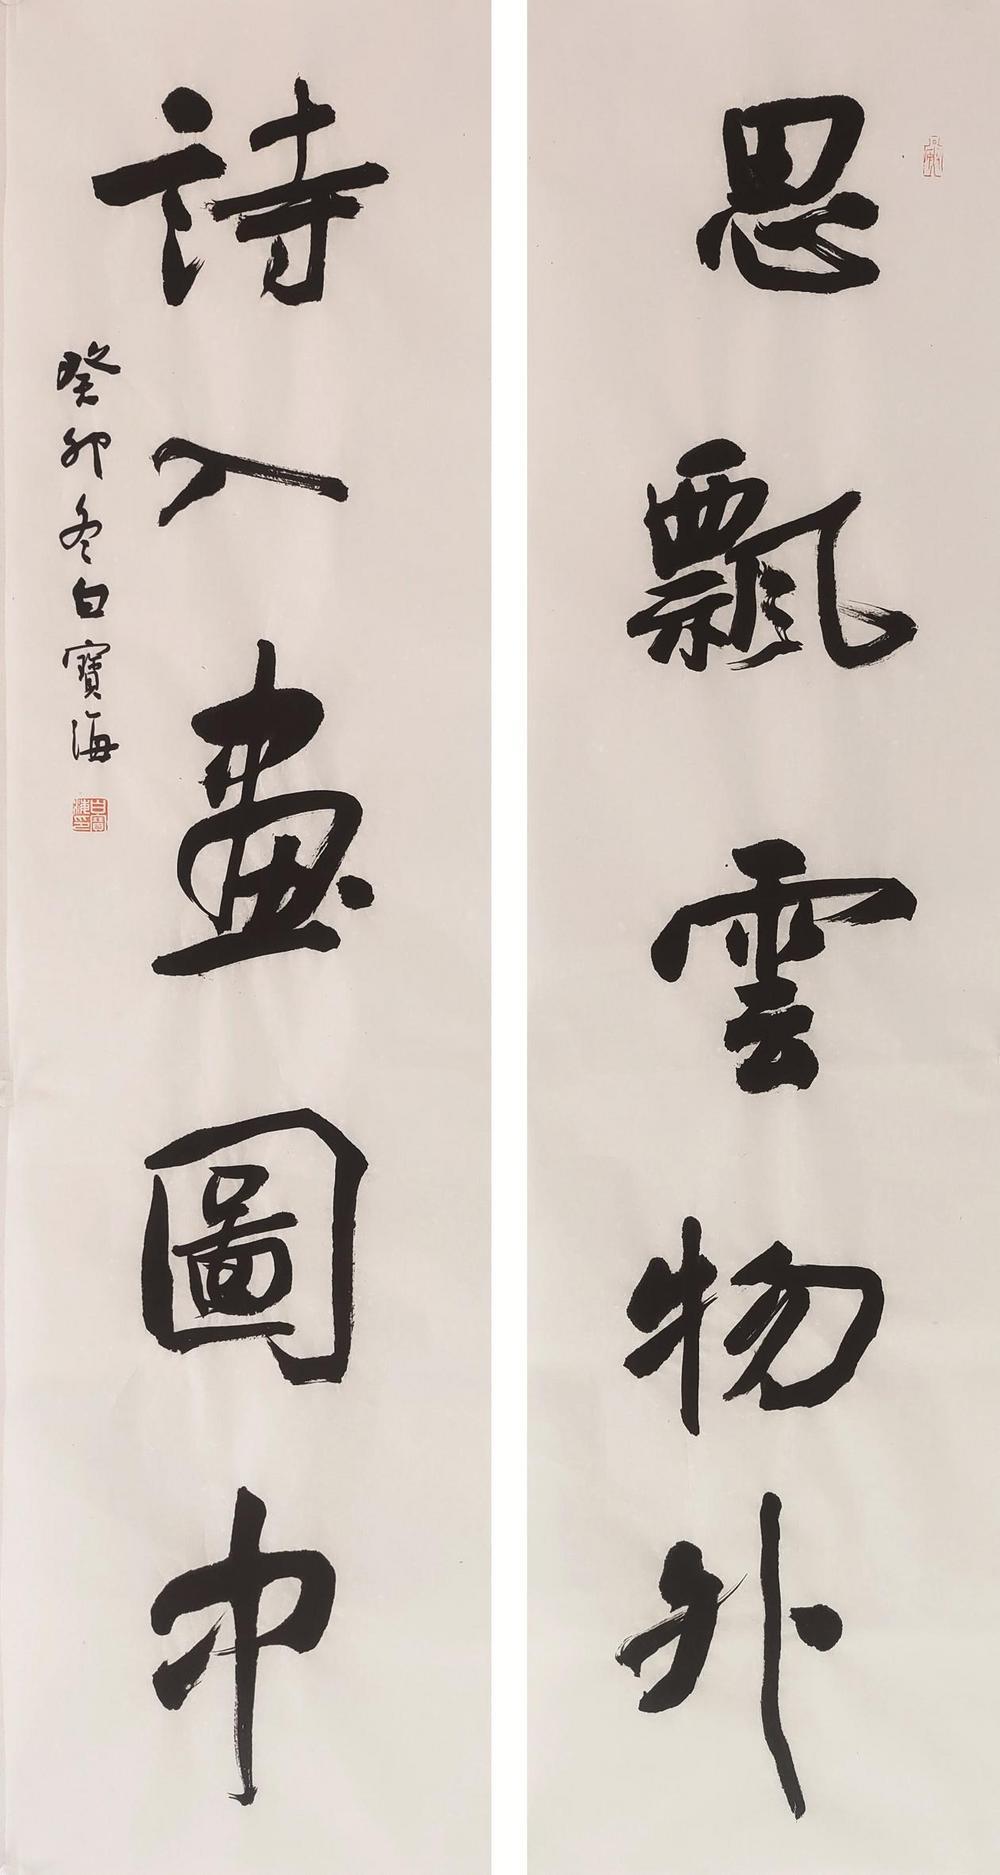 思飄雲物外
詩入畫圖中
癸卯冬白寶海
白寶海印